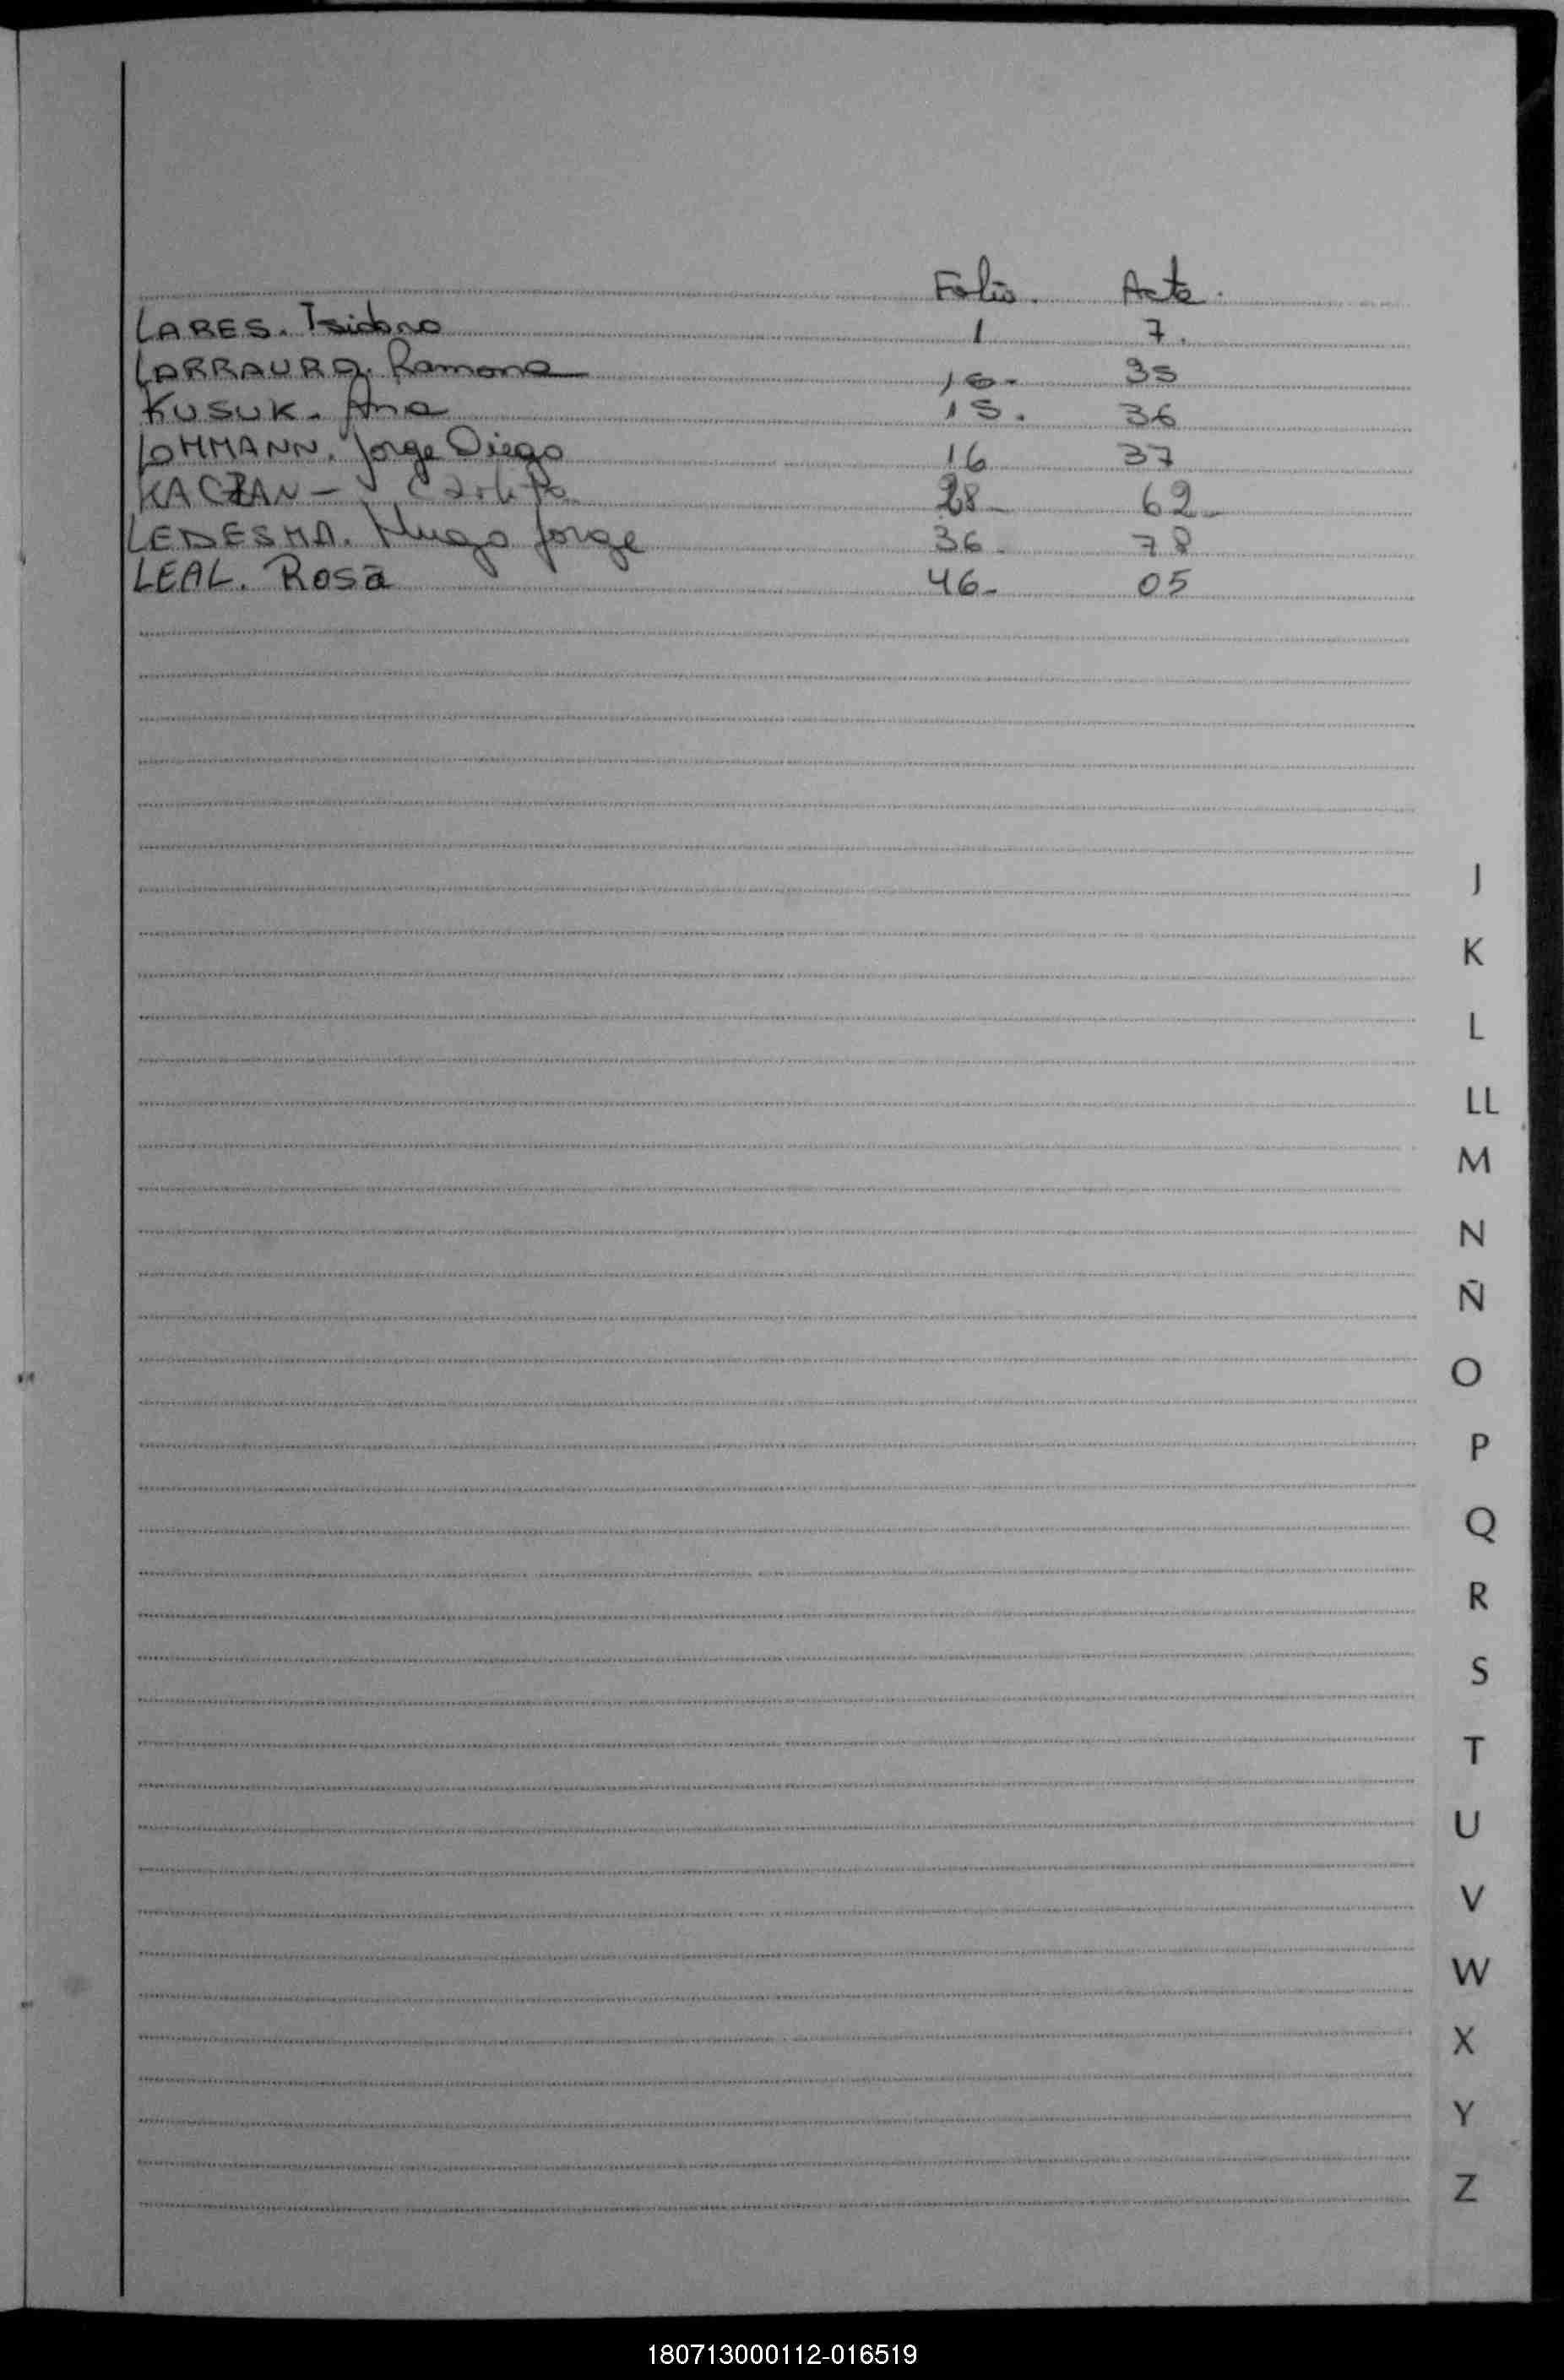 Folio. Acta.
LARES. Isidoro 1 7.
LARRAURA. Ramona 35
KUSUK. Ana 15. 36
LOHMANN. Jorge Diego 16 37
KACZAN - 28 - 62 -
LEDESMA. Hugo Jorge 36. 78
LEAL. Rosa 46 - 05
J
K
L
LL
M
N
Ñ
O
P
Q
R
S
T
U
V
W
X
Y
Z
180713000112-016519